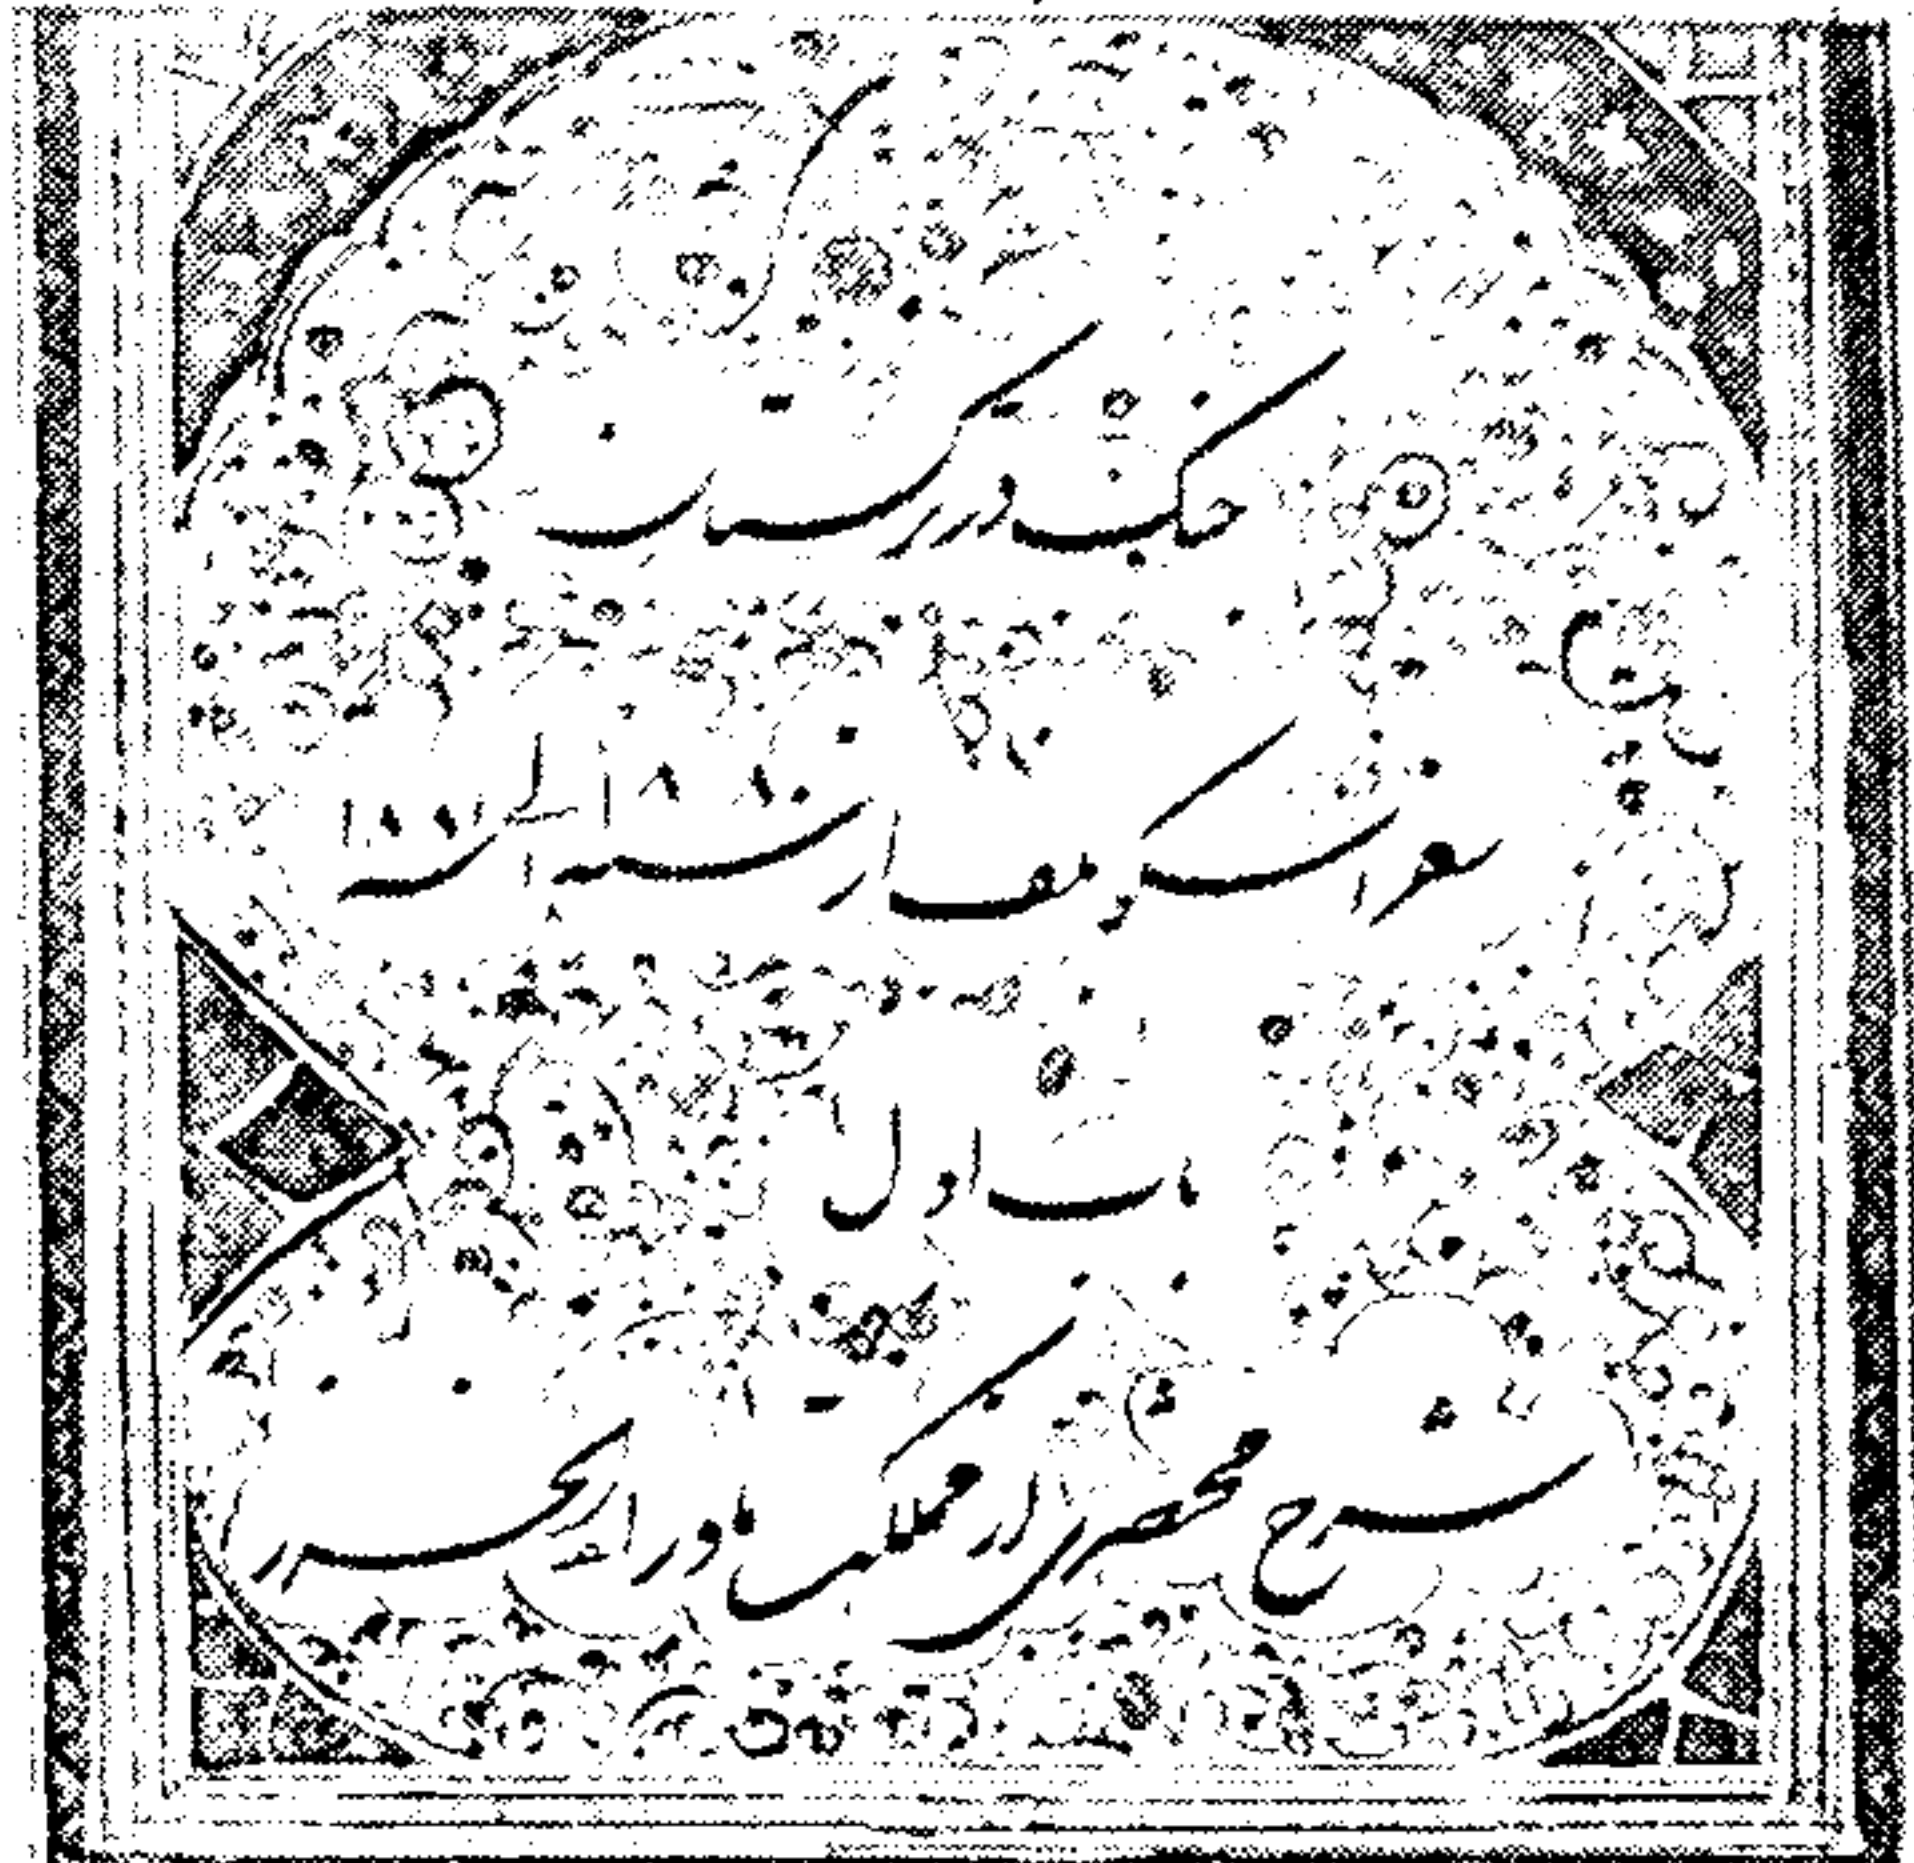 جنگ در ترکستان
سفر اسکوبلف از سنه ۱۸۸۰ الی سنه ۱۸۸۱
باب اول
شرح مختصری از مملکت ماوراء بحر خزر